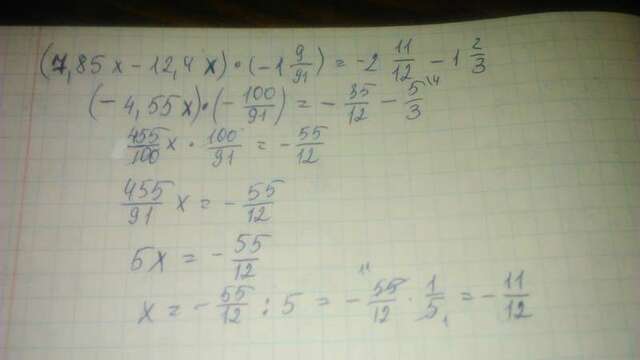 (7,85x - 12,4x) · (-1 9/91) = -2 11/12 - 1 2/3
(-4,55x) · (-100/91) = -35/12 - 5/3 \4
455/100 x · 100/91 = -55/12
455/91 x = -55/12
5x = -55/12
x = -55/12 : 5 = -55/12 · 1/5 = -11/12